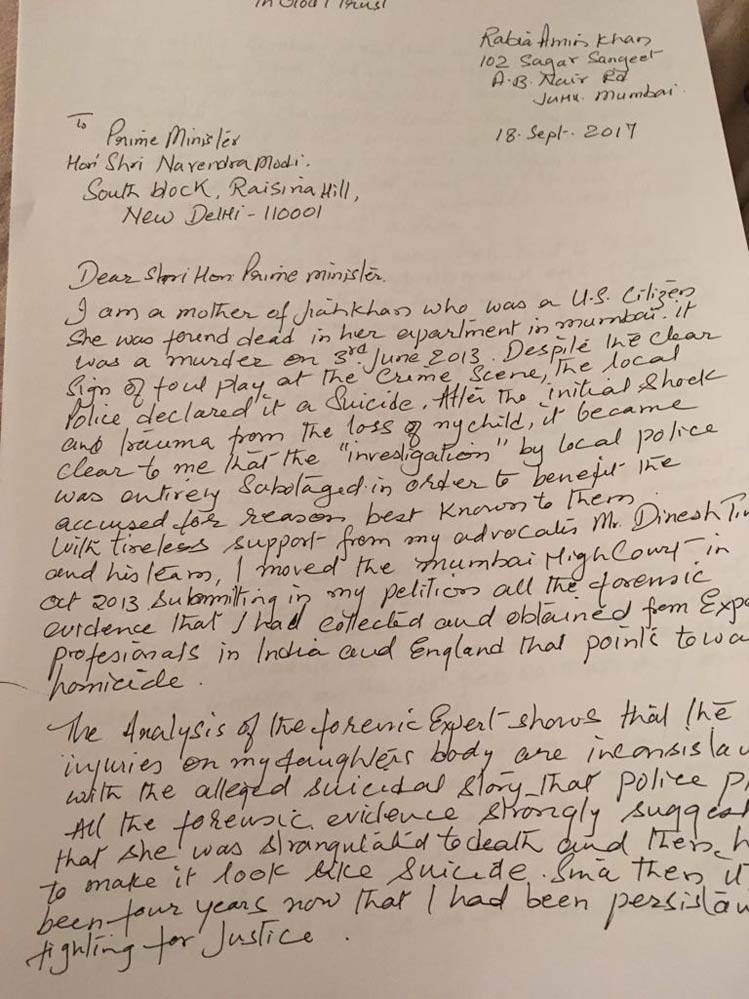 In God I Trust
Rabia Amin Khan
102 Sagar Sangeet
A.B. Nair Rd
Juhu. Mumbai.
18. Sept. 2017
To
Prime Minister
Hon' Shri Narendra Modi.
South block, Raisina Hill,
New Delhi - 110001
Dear Shri Hon Prime minister.
I am a mother of Jiah Khan who was a U.S. Citizen
She was found dead in her apartment in mumbai. it
was a murder on 3rd June 2013. Despite the clear
Sign of foul play at the Crime Scene, the local
Police declared it a Suicide. After the initial Shock
and trauma from the loss of my child, it became
clear to me that the "investigation" by local police
was entirely Sabotaged in order to benefit the
accused for reason best known to them
With tireless support from my advocates Mr. Dinesh
and his team, I moved the mumbai High Court in
Oct 2013 Submitting in my petition all the forensic
evidence that I had collected and obtained from Exp
profesionals in India and England that points towa
homicide.
The Analysis of the forenic Expert shows that the
injuries on my daughters body are inconsista
with the alleged suicidal story that police p
All the forensic evidence strongly sugges
that she was strangulated to death and then h
to make it look like suicide. Sinc then it
been four years now that I had been persista
fighting for Justice.